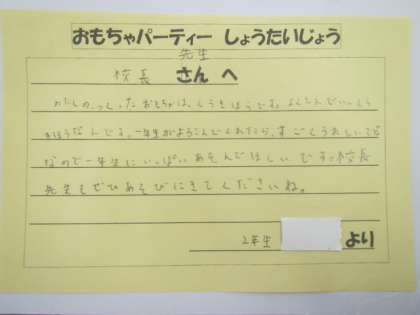 おもちゃパーティー しょうたいじょう
先生
校長 さん へ
わたしの、つくったおもちゃは、くうきほうです。よくとんでいくくう
きほうなんです。一年生がよろこんでくれたら、すごくうれしいです
なので一年生にいっぱいあそんでほしいです。校長
先生もぜひあそびにきてくださいね。
2年生 より